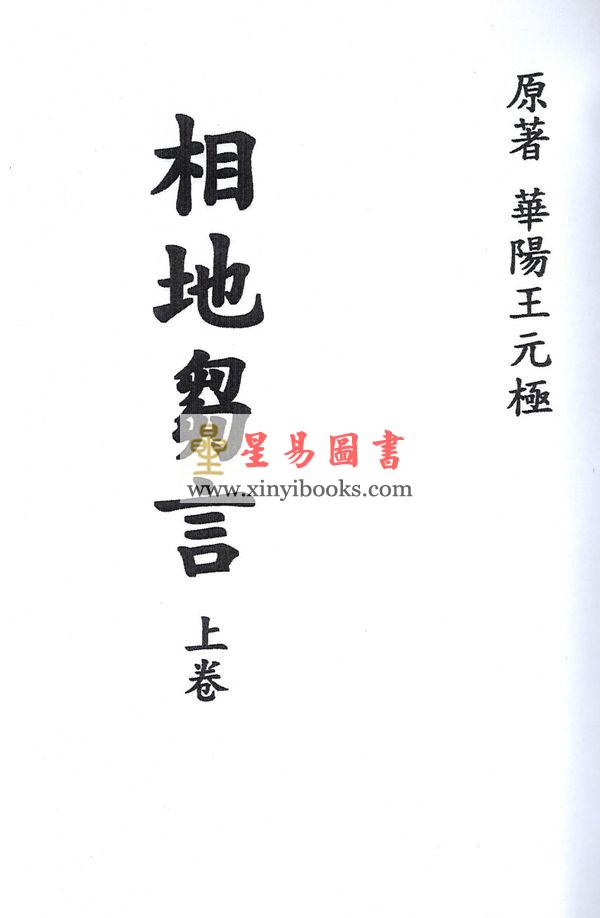 原著 華陽王元極
相地芻言 上卷
星 星易圖書
www.xinyibooks.com